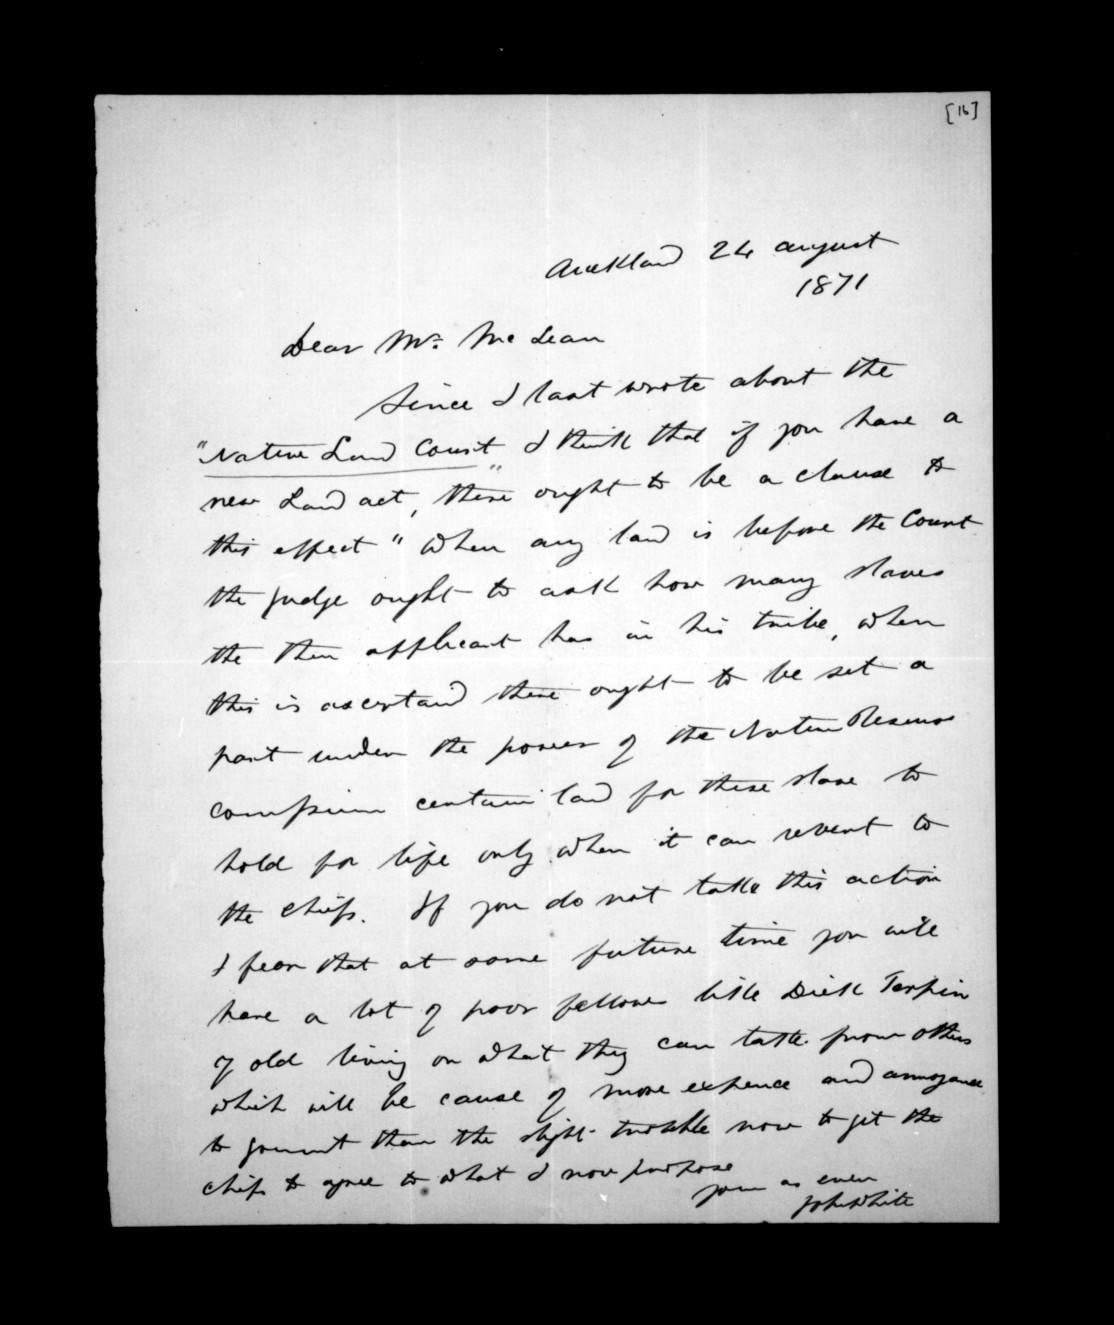 [16]
Auckland 24 august
1871
Dear Mr. McLean
Since I last wrote about the
"Native Land Court" I think that if you have a
new Land act, there ought to be a clause to
this effect "When any land is before the Court
the judge ought to ask how many slaves
the then applicant has in his tribe, when
this is ascertand there ought to be set a
part under the power of the Native Reserve
commission certain land for these slave to
hold for life only when it can revert to
the chiefs. If you do not take this action
I fear that at some future time you will
have a lot of poor fellows like Dick Terpin
of old living on what they can take from others
which will be cause of more expence and annoyance
to govrmnt than the slight trouble now to get the
chiefs to agree to what I now purpose
yours as ever
John White